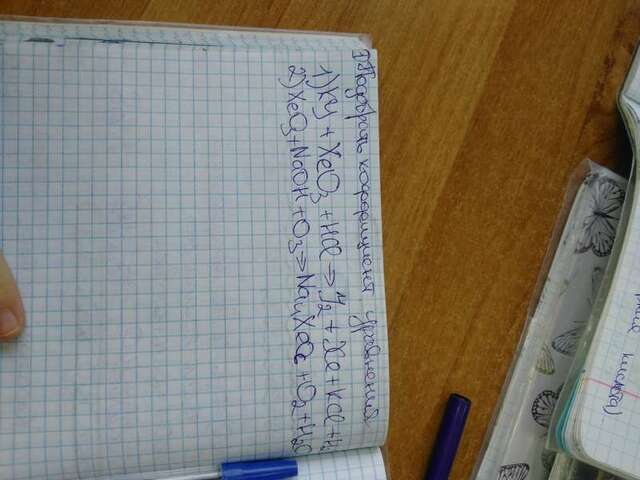 1 Подобрать коэффициент уравнений
1) KJ + XeO3 + HCl => J2 + Xe + KCl + H
2) XeO3 + NaOH + O3 => Na4XeO6 + O2 + H2O
кислота).